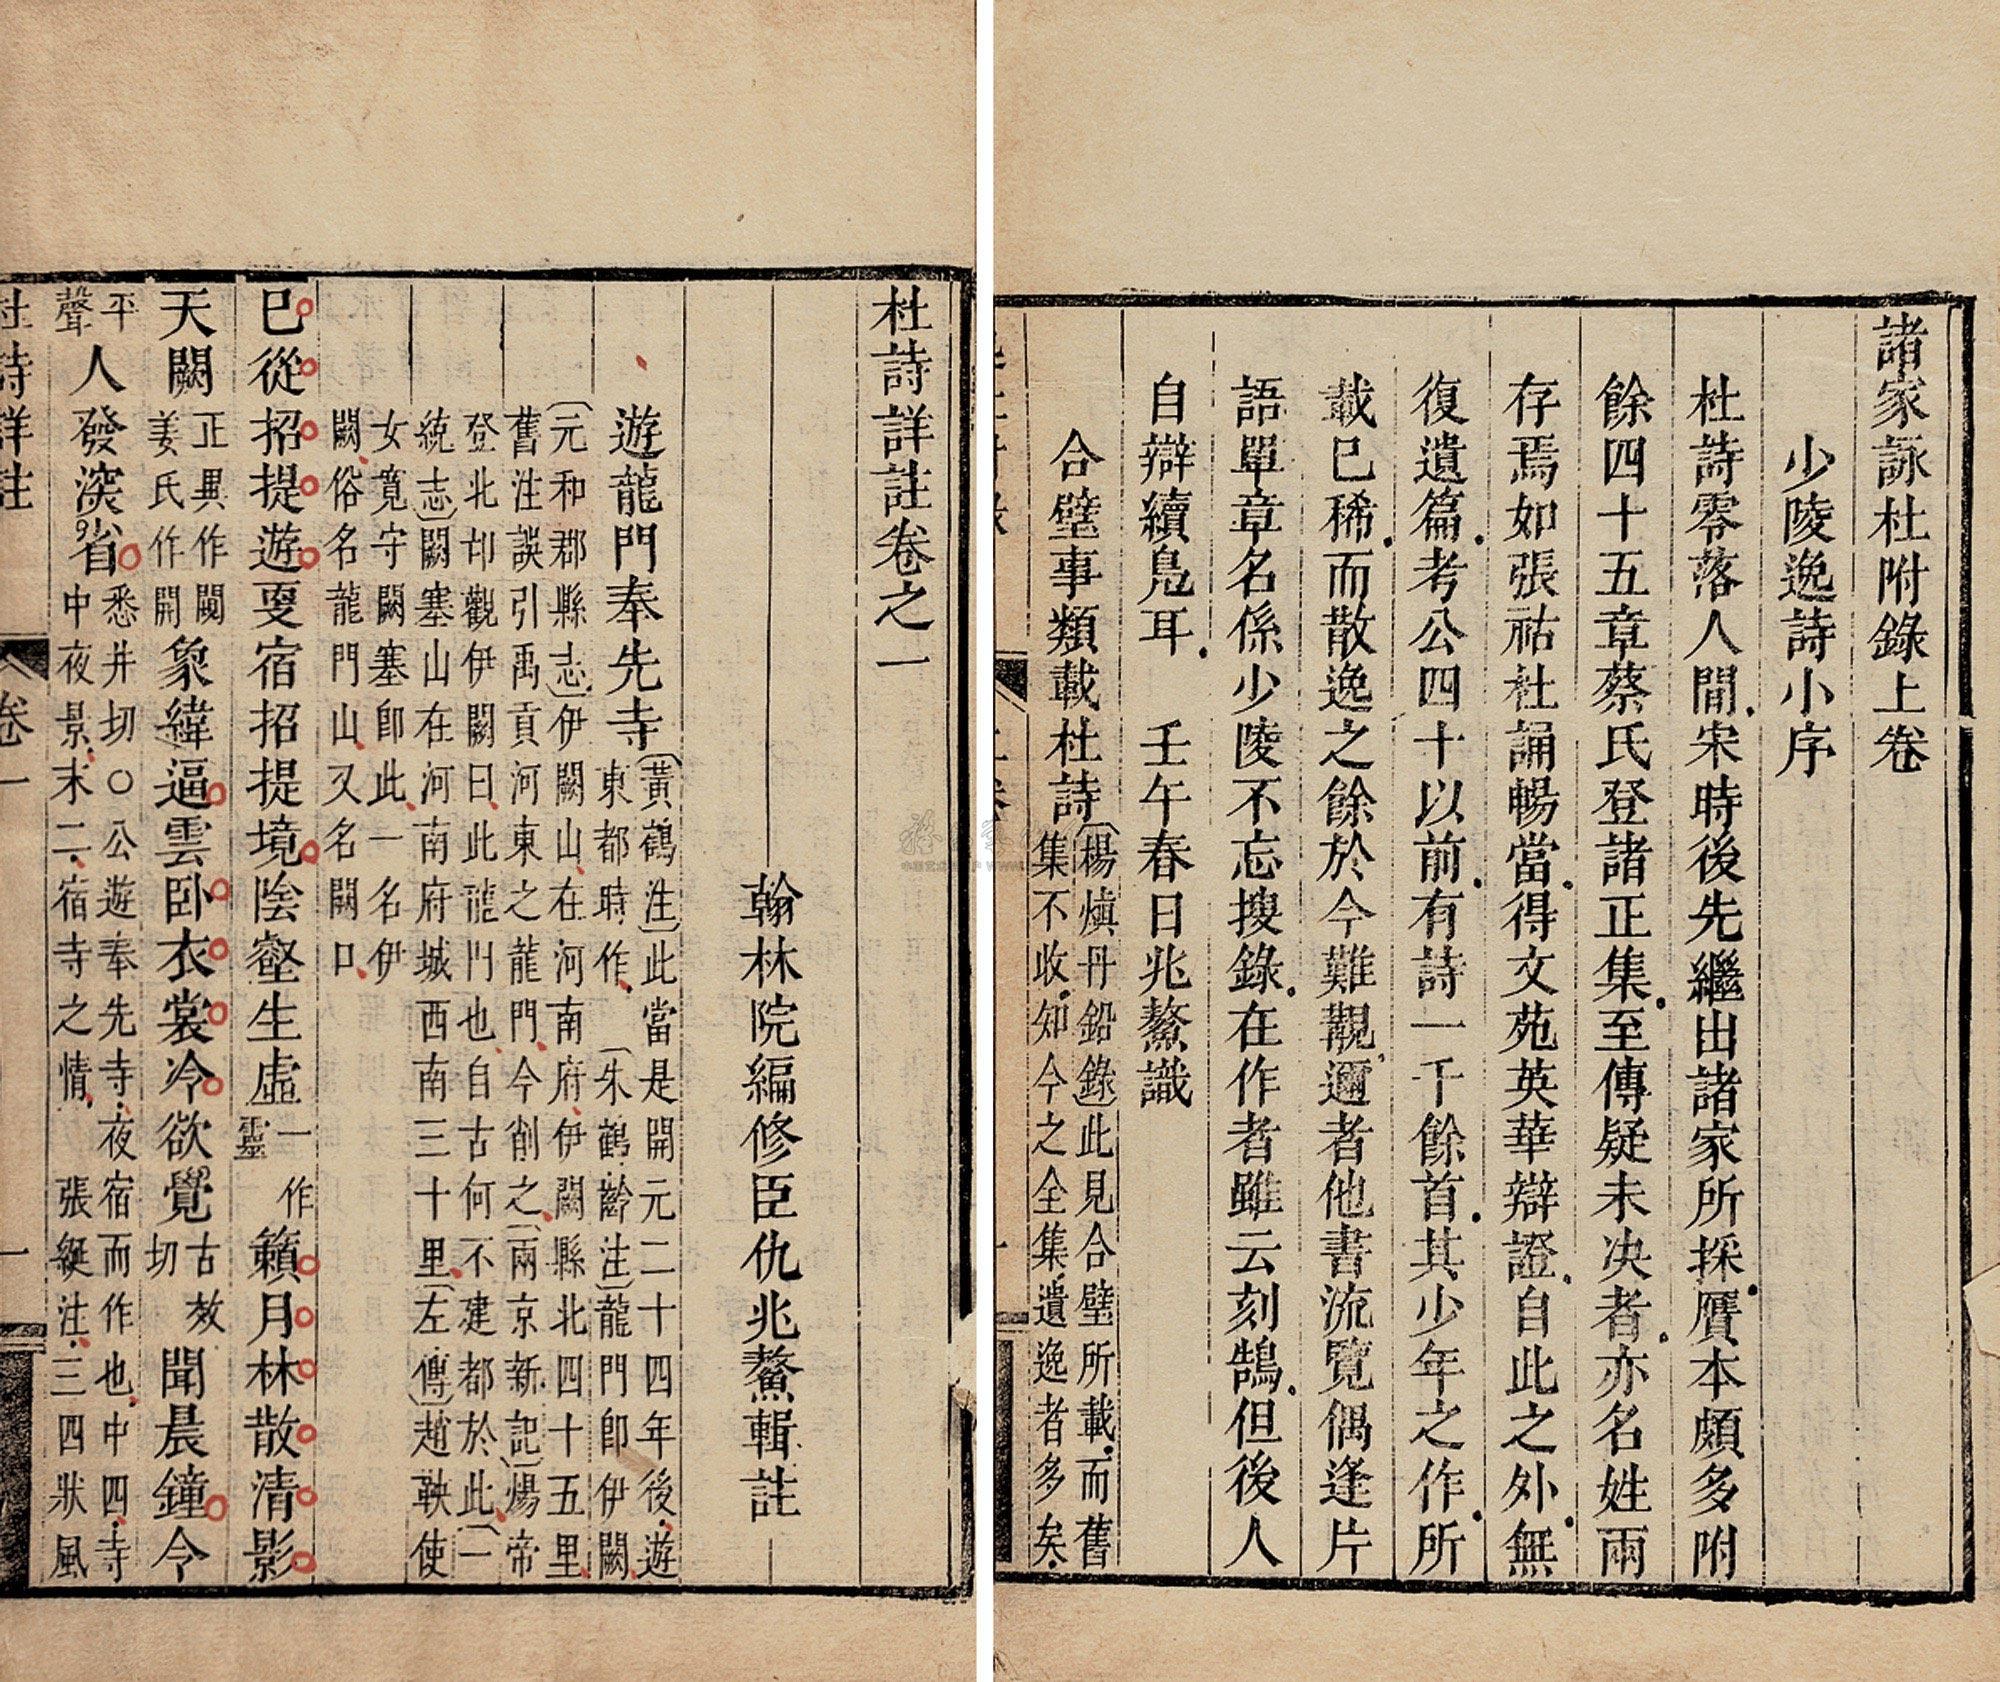 諸家詠杜附錄上卷
少陵逸詩小序
杜詩零落人間宋時後先繼出諸家所採贋本頗多附
餘四十五章蔡氏登諸正集至傳疑未决者亦名姓兩
存焉如張祜杜誦暢當得文苑英華辯證自此之外無
復遺篇考公四十以前有詩一千餘首其少年之作所
載已稀而散逸之餘於今難覩邇者他書流覽偶逢片
語單章名係少陵不忘搜錄在作者雖云刻鵠但後人
自辯續鳧耳 壬午春日兆鰲識
合璧事類載杜詩(楊慎丹鉛錄)此見合璧所載而舊
集不收知今之全集遺逸者多矣
杜詩詳註卷之一
翰林院編修臣仇兆鰲輯註
遊龍門奉先寺(黃鶴注)此當是開元二十四年後遊
東都時作(朱鶴齡注)龍門即伊闕
(元和郡縣志)伊闕山在河南府伊闕縣北四十五里
舊注誤引禹貢河東之龍門今削之(兩京新記)煬帝
登北邙觀伊闕曰此龍門也自古何不建都於此(一
統志)闕塞山在河南府城西南三十里(左傳)趙鞅使
女寬守闕塞即此一名伊
闕俗名龍門山又名闕口
已從招提遊更宿招提境陰壑生虛一作靈籟月林散清影
天闕正異作閱姜氏作開象緯逼雲卧衣裳冷欲覺古效切聞晨鐘令
平聲人發深省悉井切○公遊奉先寺夜宿而作也中四寺
中夜景末二宿寺之情 張綖注三四狀風
杜詩詳註
卷一
一